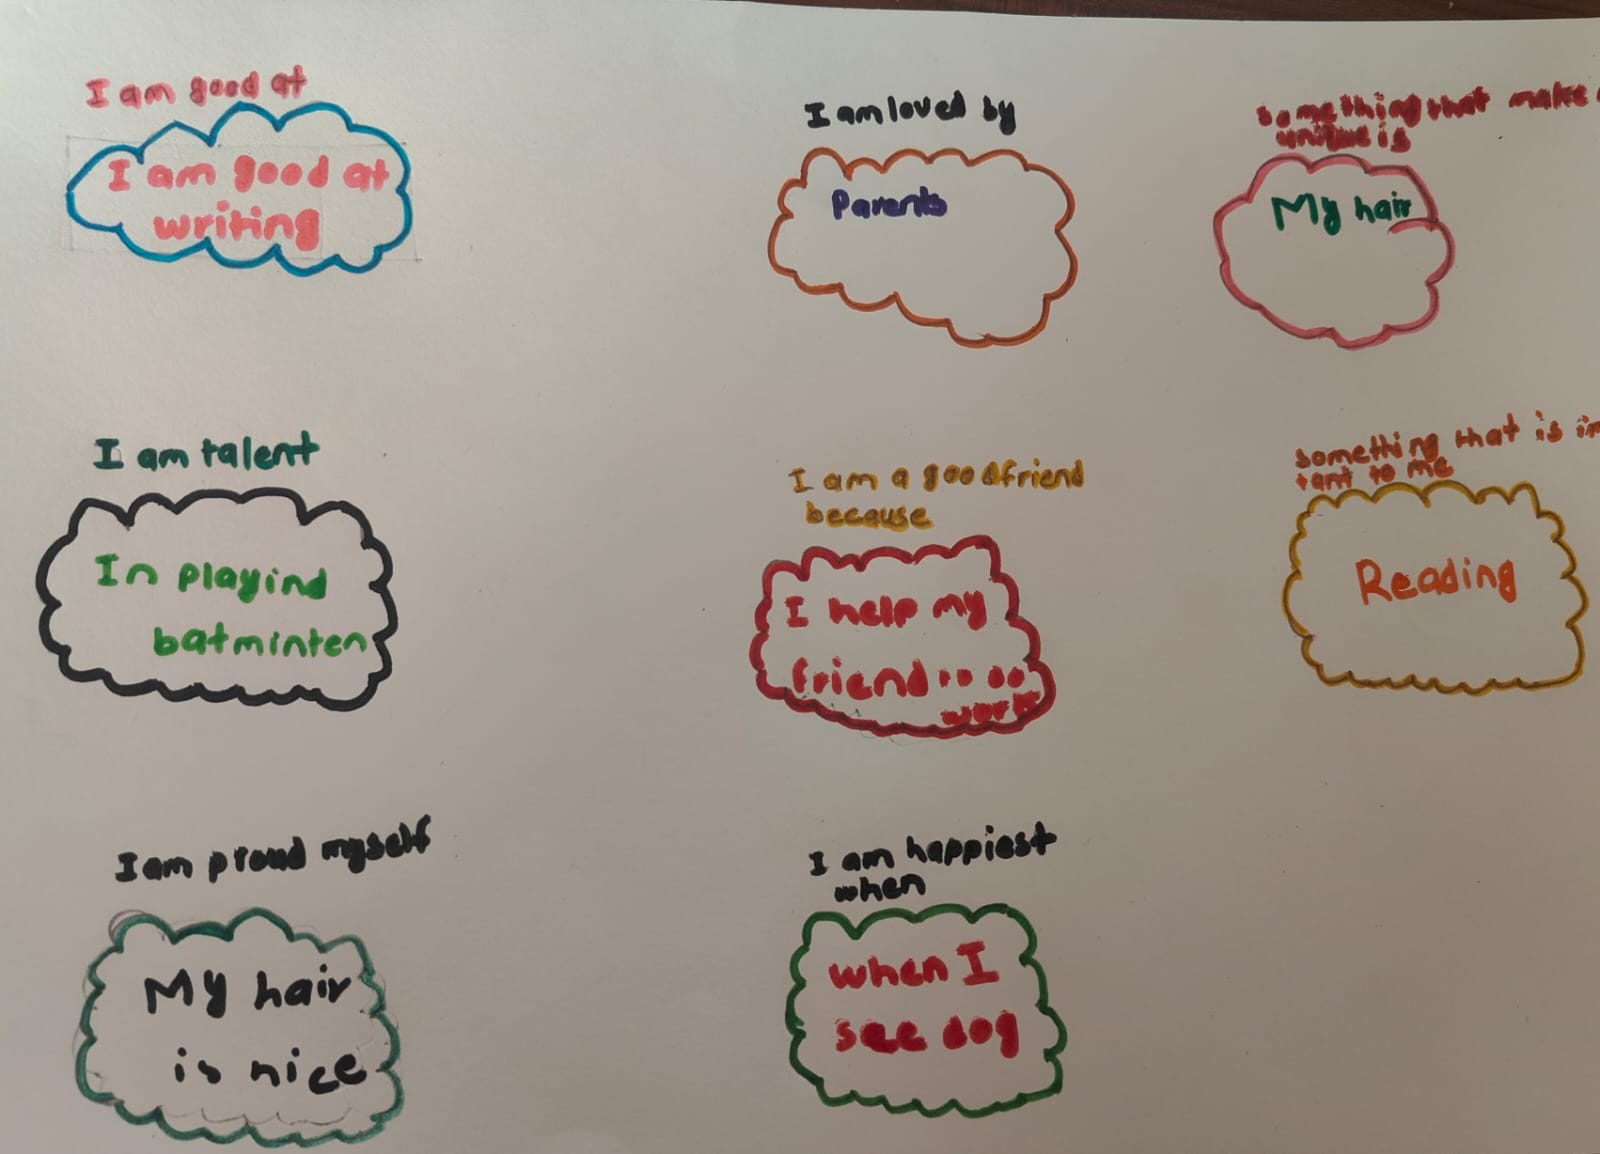 I am good at
I am good at
writing
I am loved by
Parents
something that make
unique is
My hair
I am talent
In playind
batminten
I am a good friend
because
I help my
friend to do
work
something that is im
tant to me
Reading
I am proud myself
My hair
is nice
I am happiest
when
when I
see dog